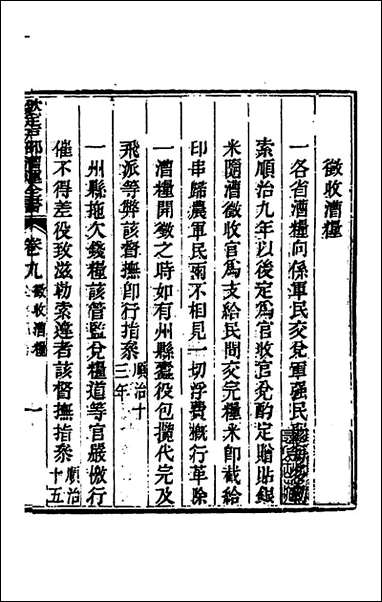 徵收漕糧
一各省漕糧向係軍民交兌軍强民
索順治九年以後定爲官收官兌酌定贈貼銀
米隨漕徵收官爲支給民間交完糧米卽截給
印串歸農軍民兩不相見一切浮費槪行革除
一漕糧開徵之時如有州縣蠹役包攬代完及
飛派等弊該督撫卽行指叅順治十三年
一州縣拖欠錢糧該管監兌糧道等官嚴檄行
催不得差役致滋勒索違者該督撫指叅順治十五
欽定戶部漕運全書
卷九
徵收漕糧
一